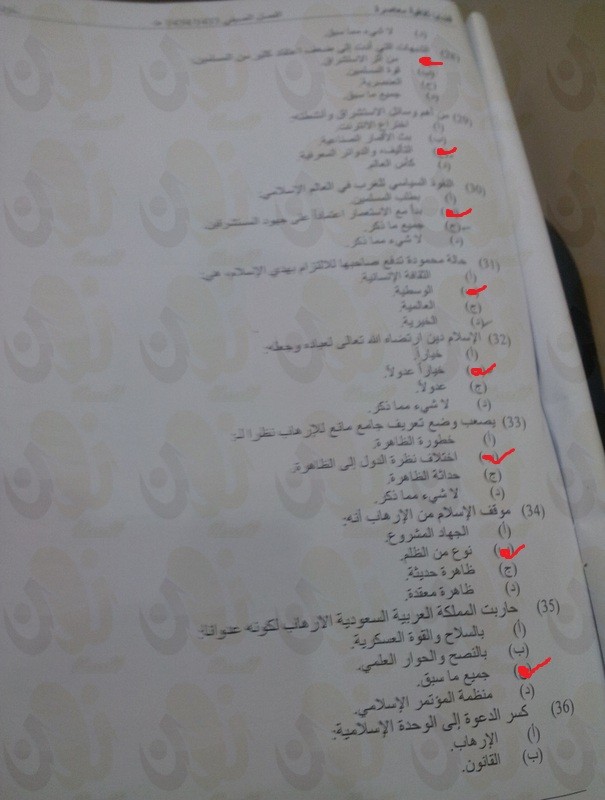 قضايا ثقافية معاصرة
الفصل الصيفي
(د) لا شيء مما سبق.
(28) الشبهات التي أدت إلى ضعف اعتقاد كثير من المسلمين:
من أثر الاستشراق.
(ب) قوة المسلمين.
(ج) العنصرية.
(د) جميع ما سبق.
(29) من أهم وسائل الاستشراق وأنشطته:
(أ) اختراع الانترنت.
(ب) بث الأقمار الصناعية.
التأليف، والدوائر المعرفية.
(د) كأس العالم.
(30) النفوذ السياسي للغرب في العالم الإسلامي:
(أ) بطلب المسلمين.
بدأ مع الاستعمار اعتماداً على جهود المستشرقين.
(ج) جميع ما ذكر.
(د) لا شيء مما ذكر.
(31) حالة محمودة تدفع صاحبها للالتزام بهدي الإسلام، هي:
(أ) الثقافة الإنسانية.
الوسطية.
(ج) العالمية.
(د) الخيرية.
(32) الإسلام دين ارتضاه الله تعالى لعباده وجعله:
(أ) خياراً.
خياراً عدولاً.
(ج) عدولاً.
(د) لا شيء مما ذكر.
(33) يصعب وضع تعريف جامع مانع للإرهاب نظرا لـ:
(أ) خطورة الظاهرة.
اختلاف نظرة الدول إلى الظاهرة.
(ج) حداثة الظاهرة.
(د) لا شيء مما ذكر.
(34) موقف الإسلام من الإرهاب أنه:
(أ) الجهاد المشروع.
نوع من الظلم.
(ج) ظاهرة حديثة.
(د) ظاهرة معقدة.
(35) حاربت المملكة العربية السعودية الارهاب لكونه عدوانا:
(أ) بالسلاح والقوة العسكرية.
(ب) بالنصح والحوار العلمي.
جميع ما سبق.
(د) منظمة المؤتمر الإسلامي.
(36) كسر الدعوة إلى الوحدة الإسلامية:
(أ) الإرهاب.
(ب) القانون.